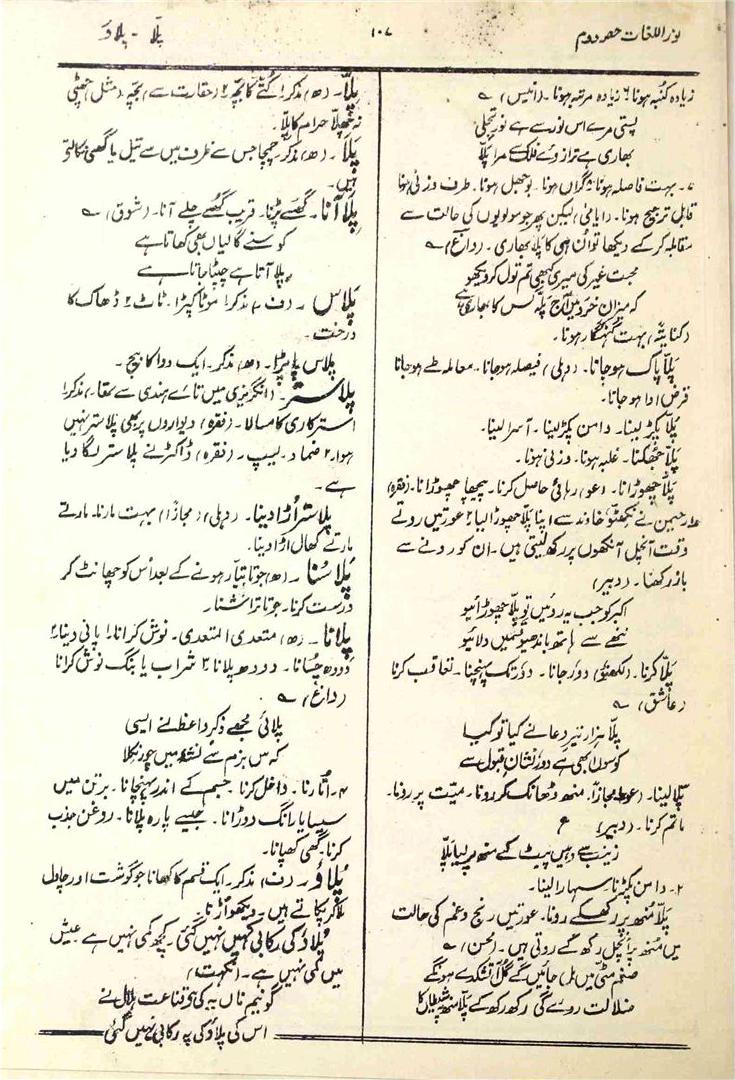 نور اللغات حصہ دوم
۱۰۷
پلّا - پلاؤ
زیادہ کنبہ ہونا ۶ زیادہ مرتبہ ہونا۔ (انیس) ؎
پستی مرے اس نور سے ہے نورِ تجلی
بھاری ہے ترازوئے فلک سے مرا پلّا
۷۔ بہت فاصلہ ہونا ۸ گراں ہونا۔ بوجھل ہونا۔ طرف وزنی ہونا
قابل ترجیح ہونا۔ (ایامیٰ) لیکن پھر جو مولویوں کی حالت سے
مقابلہ کر کے دیکھا تو اُن ہی کا پلا بھاری۔ (داغ) ؎
محبت غیر کی میری کبھی تم تول کر دیکھو
کہ میزان خرد میں آج پلہ کس کا بھاری ہے
(کنایۃً) بہت گنہگار ہونا۔
پلّا پاک ہوجانا۔ (دہلی) فیصلہ ہوجانا۔ معاملہ طے ہوجانا
قرض ادا ہوجانا۔
پلّا پکڑ لینا۔ دامن پکڑ لینا۔ آسرا لینا۔
پلّا جھکنا۔ غلبہ ہونا۔ وزنی ہونا۔
پلّا چھوڑانا۔ (عو) رہائی حاصل کرنا۔ پیچھا چھوڑانا۔ (فقرہ)
رحیمن نے نکھٹو خاوند سے اپنا پلا چھوڑا لیا ۲ عورتیں روتے
وقت آنچل آنکھوں پر رکھ لیتی ہیں۔ ان کو رونے سے
باز رکھنا۔ (دبیر)
اکبر کو جب یہ روئیں تو پلّا چھوڑائیو
ننھے سے ہاتھ باندھیو قسمیں دلائیو
پلّا کرنا۔ (لکھنؤ) دوڑ جانا۔ دور تک پہنچنا۔ تعاقب کرنا
(عاشق) ؎
پلّا ہزار تیرِ دعا نے کیا تو کیا
کوسوں ابھی ہے دور نشان قبول سے
پلّا لینا۔ (عو۔ مجازاً) منھ ڈھانک کر رونا۔ میّت پر رونا۔
ماتم کرنا۔ (دبیر) ع
زینب سے وہیں پیٹ کے منھ پر لیا پلّا
۲۔ دامن پکڑنا سہارا لینا۔
پلّا منھ پر رکھ کے رونا۔ عورتیں رنج و غم کی حالت
میں منھ پر آنچل رکھ کے روتی ہیں۔ (محسن) ؎
صنم مٹی میں مل جائیں گے گُل آتشکدے ہونگے
ضلالت روئے گی رکھ رکھ کے پلّا منھ پہ شیطاں کا
پِلّا۔ (ھ) مذکر ۱ کُتے کا بچہ ۲ (حقارت سے) بچہ۔ (مثل) جھپٹی
نہ حرام کا پلّا۔
پَلا۔ (ھ) مذکر۔ چمچا جس سے ظرف میں سے تیل یا گھی نکالتے
ہیں۔
پلا آنا۔ گھسے پڑنا۔ قریب گھسے چلے آنا۔ (شوق) ؎
کوسنے گالیاں بھی کھاتا ہے
پلا آتا ہے چپٹا جاتا ہے
پلاس۔ (ف) مذکر ۱ موٹا کپڑا۔ ٹاٹ ۲ ڈھاک کا
درخت۔
پلاس پاپڑا۔ (ھ) مذکر۔ ایک دوا کا بیج۔
پلاستر۔ (انگریزی میں تائے ہندی سے تھا) مذکر ۱
استرکاری کا مسالا۔ (فقرہ) دیواروں پر بھی پلاستر نہیں
ہوا۔ ۲ ضماد۔ لیپ۔ (فقرہ) ڈاکٹر نے پلاستر لگا دیا
ہے۔
پلاستر اُڑا دینا۔ (دہلی) (مجازاً) بہت مارنا۔ مارتے
مارتے کھال اڑا دینا۔
پلاسنا۔ (ھ) جوتا تیار ہونے کے بعد اس کو چھانٹ کر
درست کرنا۔ جوتا تراشنا۔
پِلانا۔ (ھ) متعدی المتعدی۔ نوش کرانا ۱ پانی دینا ۲
دودھ چُسانا۔ دودھ پلانا ۳ شراب یا بنگ نوش کرانا
(داغ) ؎
پلائی مجھے ذکرِ واعظ نے ایسی
کہ میں بزم سے نشہ میں چور نکلا
۴۔ اُتارنا۔ داخل کرنا۔ جسم کے اندر پہنچانا۔ برتن میں
سیسا یا رانگ دوڑانا۔ جیسے پارہ پلانا۔ روغن جذب
کرنا۔ گھی کھپانا۔
پُلاؤ۔ (ف) مذکر۔ ایک قسم کا کھانا جو گوشت اور چاول
ملا کر پکاتے ہیں۔ دیکھو اڑانا۔
پلاؤ کی رکابی کہیں نہیں گئی۔ کچھ کمی نہیں ہے عیش
میں کمی نہیں ہے۔ (نکہت)
گو نیم ناں پہ کی ہے قناعت ہلال نے
اس کی پلاؤ کی پہ رکابی نہیں گئی